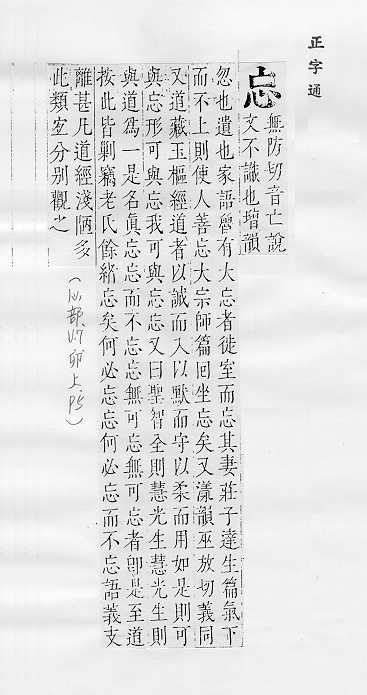 正字通
忘
無防切音亡說
文不識也增韻
忽也遺也家語魯有大忘者徙室而忘其妻莊子達生篇氣下
而不上則使人善忘大宗師篇回坐忘矣又漾韻巫放切義同
又道藏玉樞經道者以誠而入以默而守以柔而用如是則可
與忘形可與忘我可與忘忘又曰聖智全則慧光生慧光生則
與道爲一是名眞忘忘而不忘忘無可忘無可忘者卽是至道
按此皆剿竊老氏餘緖忘矣何必忘忘何必忘而不忘語義支
離甚凡道經淺陋多
此類宐分別觀之
(心部 卯上 P5)